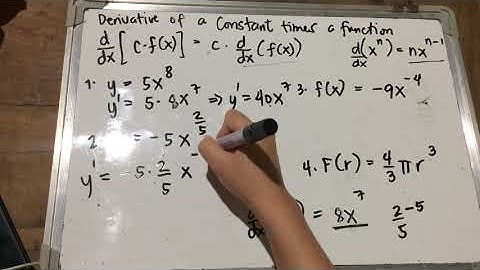 Derivative of a Constant times a function
d/dx [c·f(x)] = c · d/dx (f(x))
d/dx (xⁿ) = nxⁿ⁻¹
1. y = 5x⁸
y' = 5 · 8x⁷ ⇒ y' = 40x⁷
3. f(x) = -9x⁻⁴
2. = -5x^(2/5)
y' = -5 · 2/5 x⁻
4. F(r) = 4/3 πr³
dx = 8x⁷
2-5
5